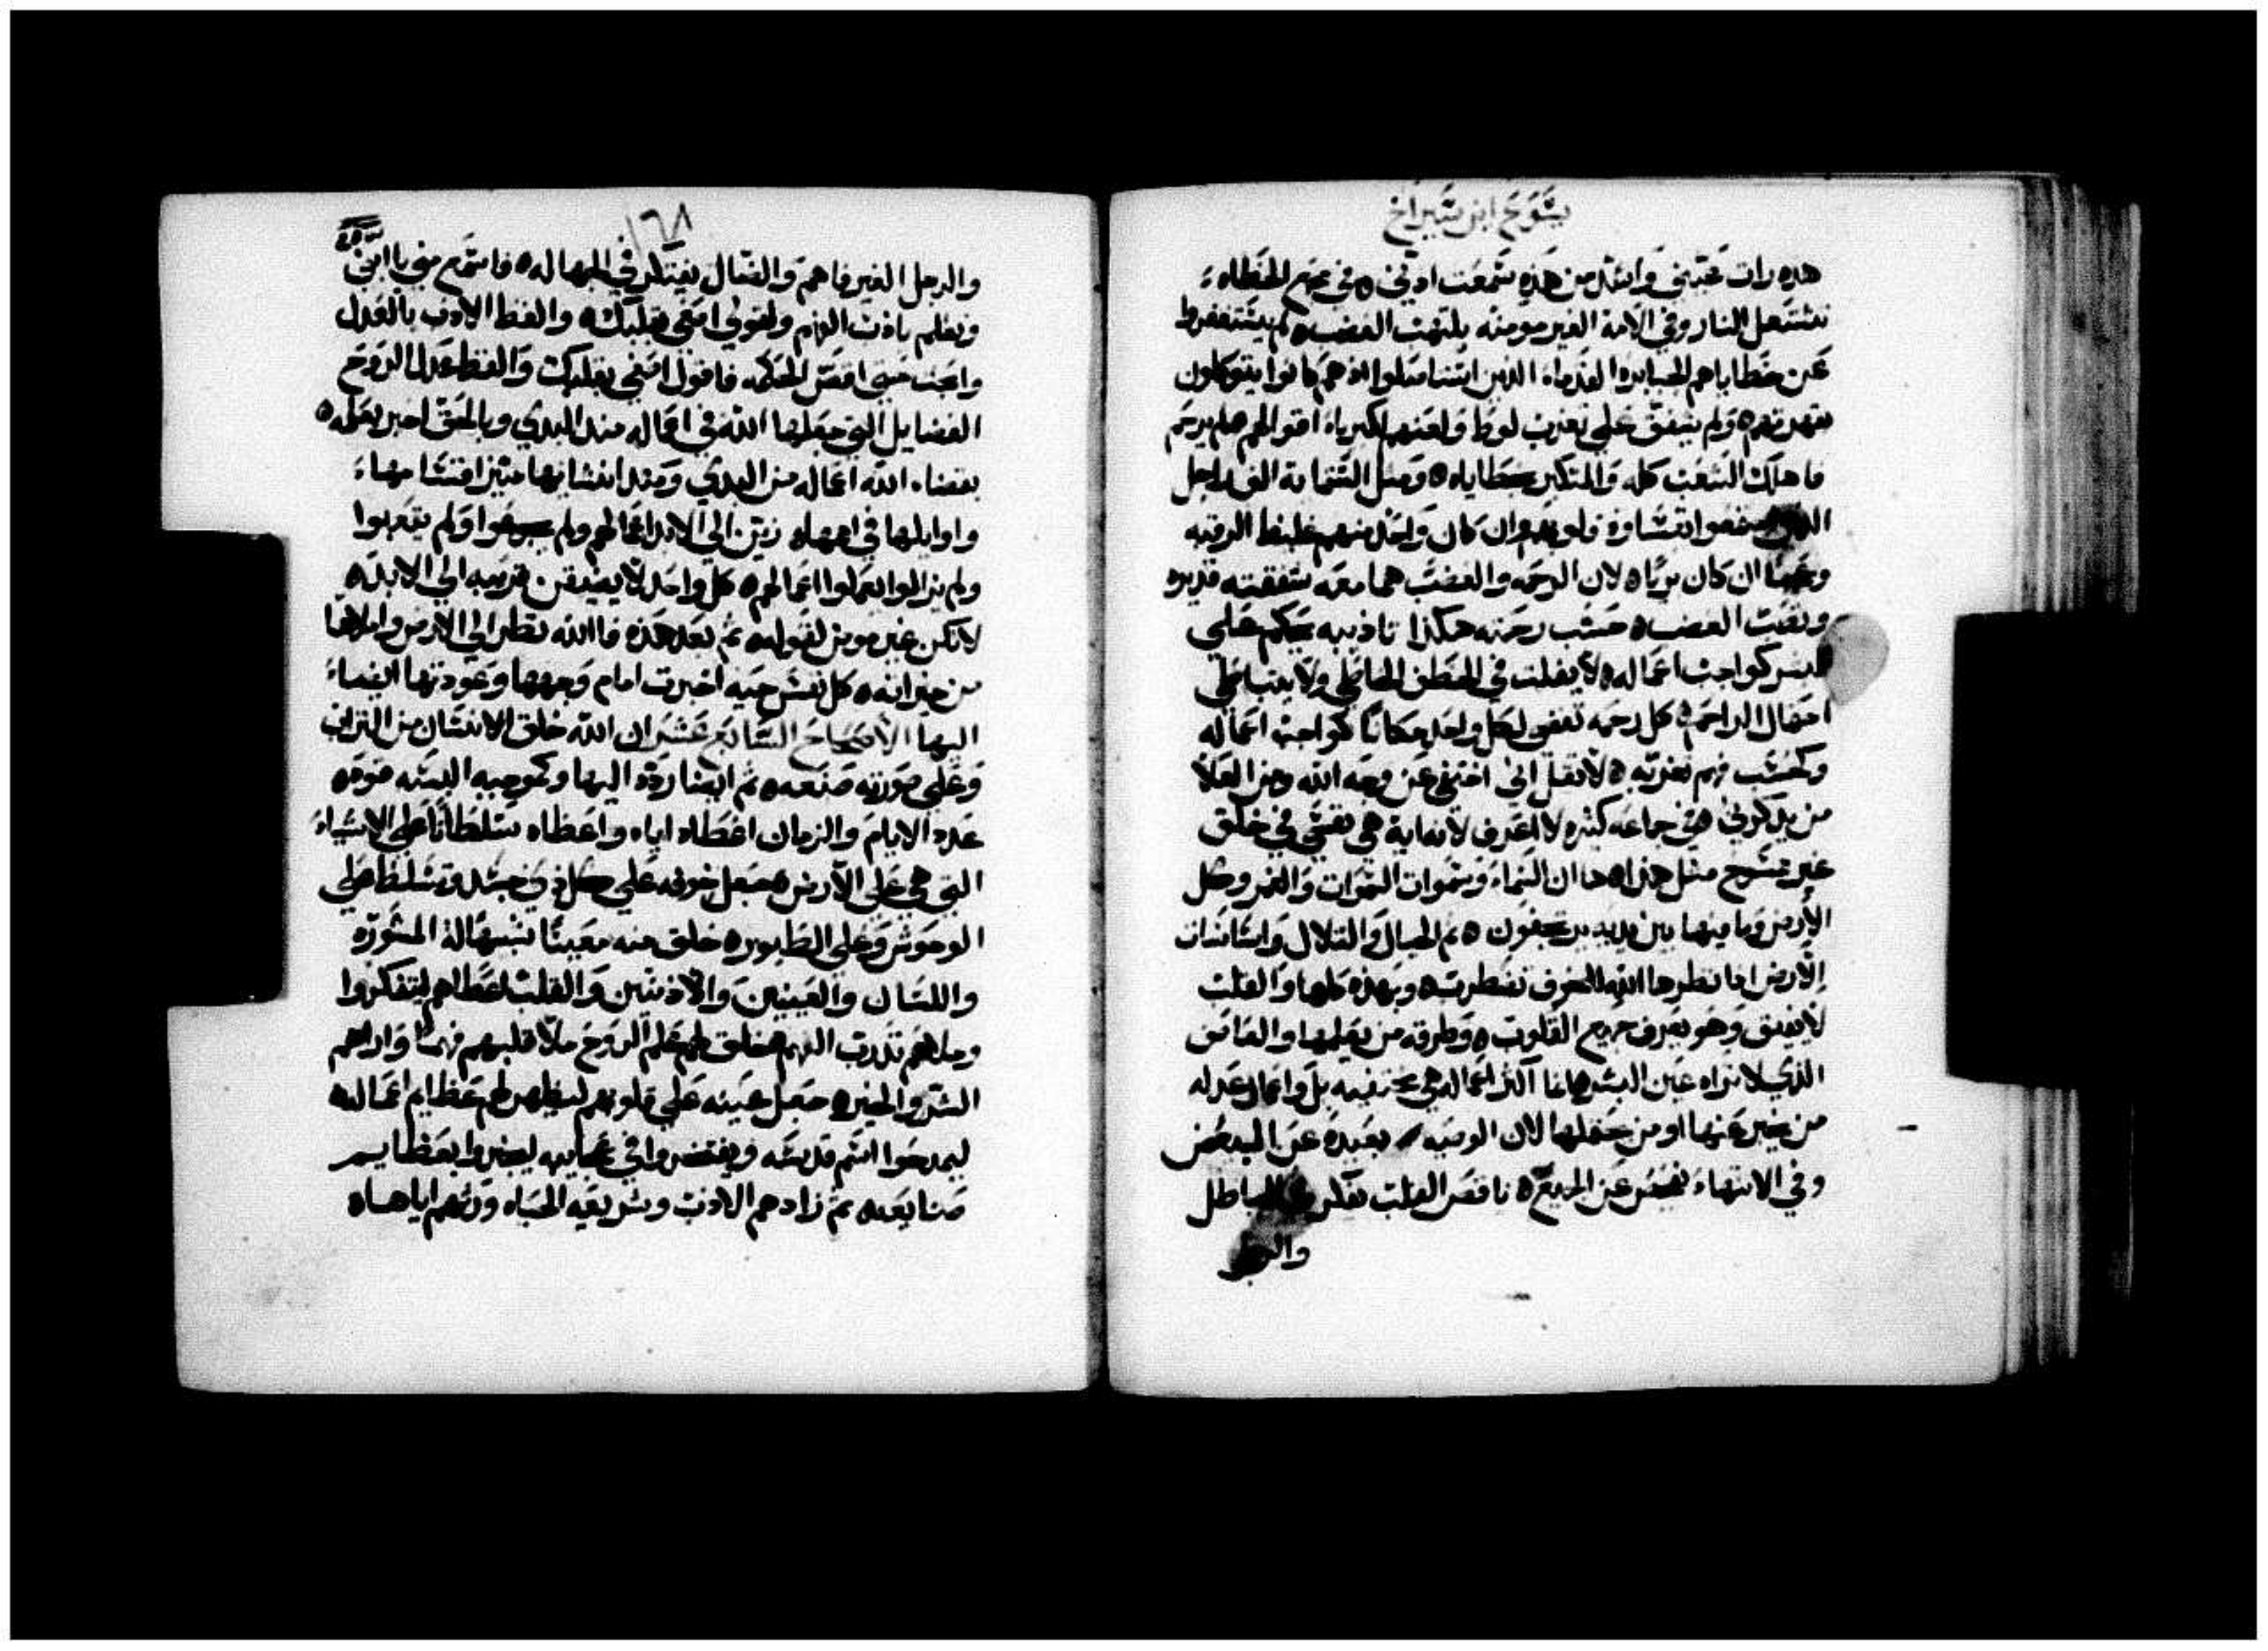 يشوع ابن شيراخ
هذه رات عيني واشد من هذه سمعت اذني ه في مجمع الخطاه
تشتعل النار وفي الامة الغير مومنه يلتهب الغضب ه لم يستغفروا
عن خطاياهم الجبابره القدماء الذين استناصلوا اذ هم كانوا يتوكلون
بقدرتهم ه ولم يشفق على تغرب لوط ولعنهم لكبرياء اقوالهم ه لم يرحم
فاهلك الشعب كله والمتكبر بخطاياه ه ومثل الستماية الف راجل
اجتمعوا بقساوة قلوبهم وان كان واحد منهم غليظ الرقبه
وعجبا ان كان بريا ه لان الرحمه والغضب هما معه شفقته قديره
وتفيت الغضب ه حسب رحمته هكذا تاديبه يحكم على
البشر كواجب اعماله ه لا يفلت في الخطف الخاطي ولا يتباطى
احتمال الراحم ه كل رحمه تعفى لكل واحد مكانا كواجب اعماله
وكحسب فهم تغربه ه لا تقل اني اختفي عن وجه الله ومن العلا
من يذكرني ه في جماعه كثيره لا اعرف لانماية هي نفسي في خلق
غير ممسوح مثل هذا ه ها ان السماء وسموات السموات والغمر وكل
الارض وما فيها بين يديه يرتجفون ه ثم الجبال والتلال واساسات
الارض اذا نظرها الله بالخوف تفطرت ه وبهذه كلها والقلب
لا يفيق وهو يعرف جميع القلوب ه وطرقه من يفهمها والعاصف
الذي لا تراه عين البشر ه فاما اكثر اعماله هي مختفيه بل واعمال عدله
من يخبر عنها او من يحتملها لان الوصيه بعيده عن البعض
وفي الانتهاء تفحص عن الجميع ه ناقص القلب يفكر الباطل
والرجل
١٦٨
والرجل الغير فاهم والضال يفتكر في الجهاله ه فاستمع مني يا ابني
وتعلم باذب الفهم ولقولي اصغى بقلبك ه والفظ الادب بالعدل
وابحث حتى اقص الحكمه فاقول اصغي بقلبك والفظ عدل الروح
الفضايل التي جعلها الله في اعماله منذ البدي وبالحق اخبر بعلمه ه
بقضاء الله اعماله من البدي ومنذ انشايها ميز اقسامهاء
واوايلها في اممها ه زين الى الابد اعمالهم ولم يجوعوا ولم يتعبوا
ولم يزالوا ليعملوا اعمالهم ه كل واحد لا يضيق قريبه الى الابد ه
لا تكن غير مومن لقوله ه ثم بعد هذه فالله نظر الى الارض واملاها
من خيراته ه كل نفس حيه اخبرت امام وجهها وعودتها ايضاء
اليها الاصحاح السابع عشر ان الله خلق الانسان من التراب
وعلى صورته صنعه ه ثم ايضا رده اليها وكموجبه البسه قوه ه
عدد الايام والزمان اعطاه اياه واعطاه سلطانا على الاشياء
التي هي على الارض ه جعل خوفه على كل ذي جسد وتسلط على
الوحوش وعلى الطيور ه خلق منه معينا شبيها له المشوره
واللسان والعينين والاذنين والقلب اعطاهم ليتفكروا
وملاهم تدرب الفهم ه خلق لهم علم الروح ملا قلبهم فهما واراهم
الشر والخير ه جعل عينه على قلوبهم ليظهر لهم عظايم اعماله
ليمدحوا اسم قدسه ويفتخروا في عجايبه ليخبروا بعظايم
صنايعه ه ثم زادهم الادب وشريعه الحياه ورثهم اياهاه